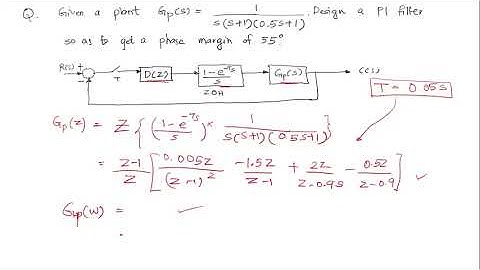 Q. Given a plant Gp(s) = 1 / s(s+1)(0.5s+1). Design a PI filter
so as to get a phase margin of 55°
R(s) + - T D(z) 1-e^-Ts / s ZOH Gp(s) C(s)
T = 0.05s
Gp(z) = Z{(1-e^-Ts / s) × 1 / s(s+1)(0.5s+1)}
= z-1 / z [0.005z / (z-1)² - 1.5z / z-1 + 2z / z-0.95 - 0.5z / z-0.9]
Gp(w) =